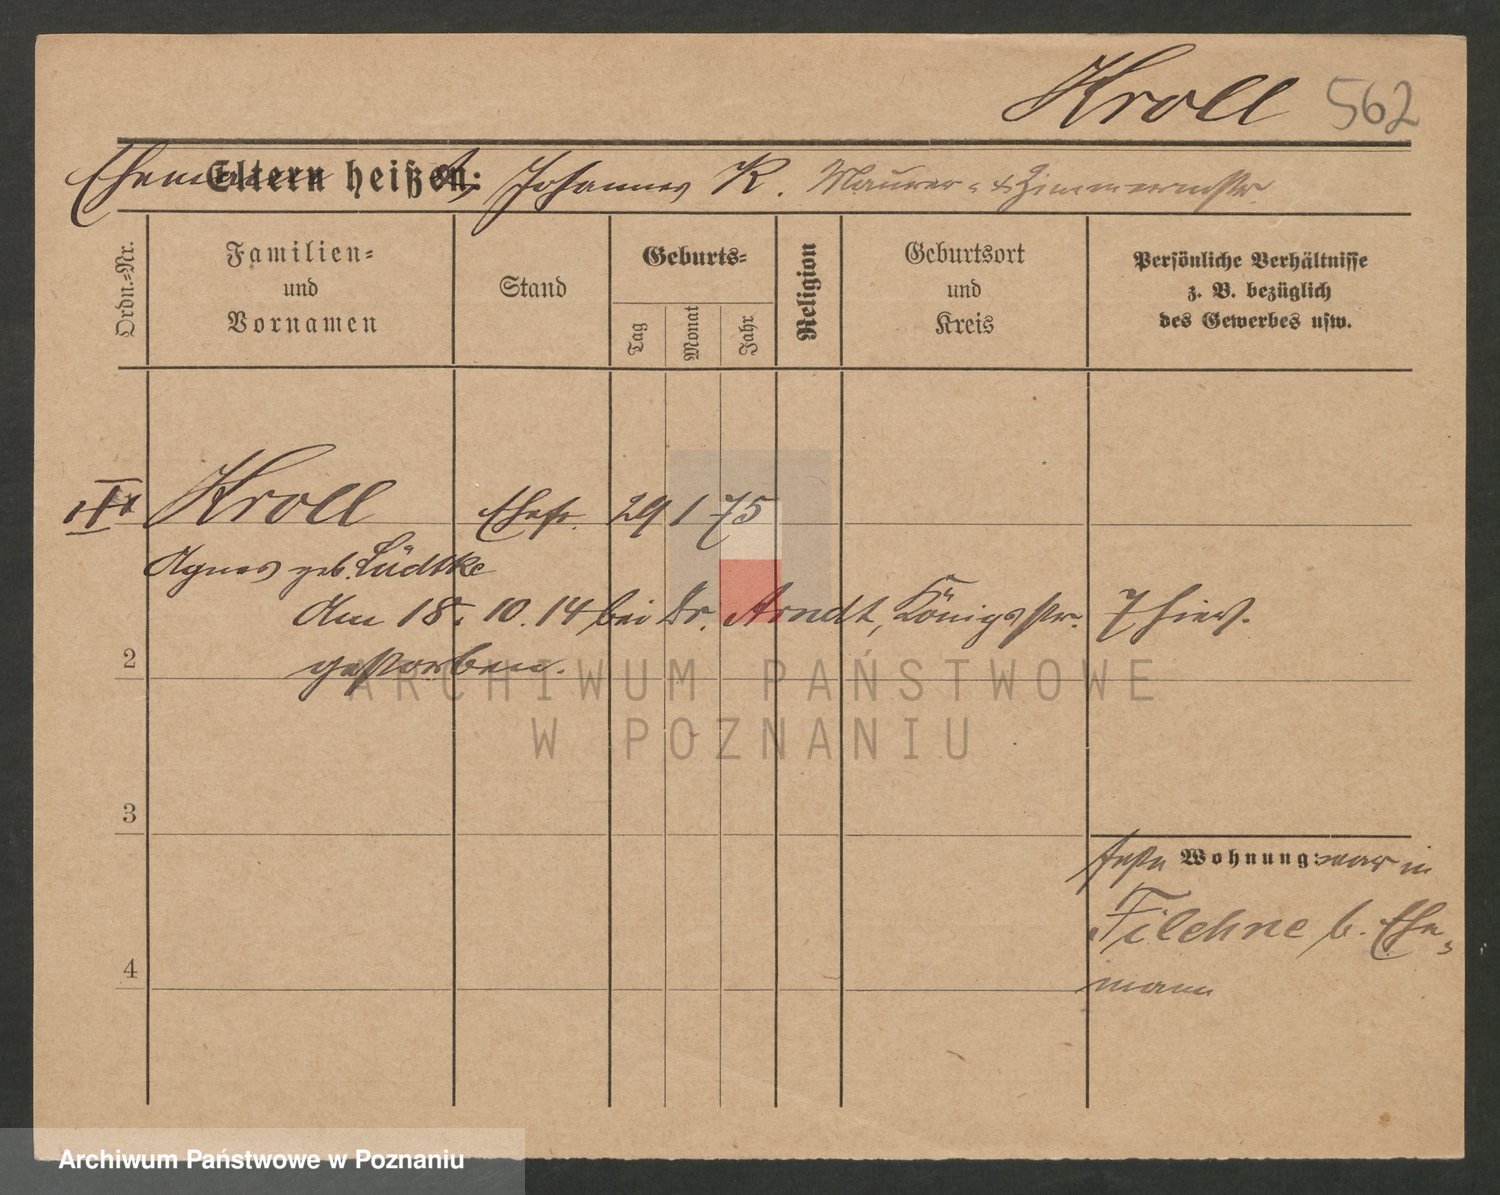 Kroll 562
Eltern heißen:
Ehemann Johannes K. Maurer- & Zimmermstr.
Ordn.=Nr.
Familien=
und
Vornamen
Stand
Geburts=
Tag
Monat
Jahr
Religion
Geburtsort
und
Kreis
Persönliche Verhältnisse
z. B. bezüglich
des Gewerbes usw.
Kroll Ehefr. 29 1 75
Agnes geb. Lüdtke
Am 18. 10. 14 bei Dr. Arndt, Königsstr. 7 hier.
2 gestorben.
3
4
Wohnung: war in
Filehne b. Ehe=
mann
ARCHIWUM PAŃSTWOWE
W POZNANIU
Archiwum Państwowe w Poznaniu